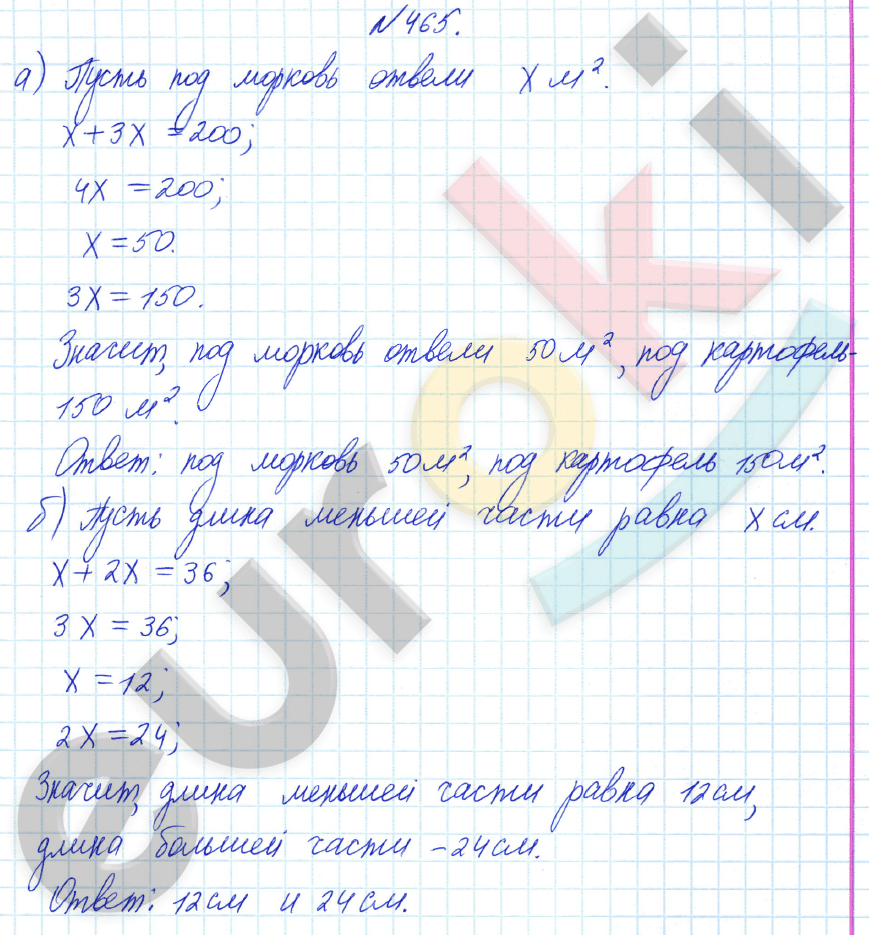 №465.
а) Пусть под морковь отвели x м².
x+3x =200;
4x =200;
x=50.
3x=150.
Значит, под морковь отвели 50 м², под картофель-
150 м².
Ответ: под морковь 50 м², под картофель 150 м².
б) Пусть длина меньшей части равна x см.
x+2x=36;
3x=36;
x=12;
2x=24;
Значит, длина меньшей части равна 12 см,
длина большей части – 24 см.
Ответ: 12 см и 24 см.
euroki